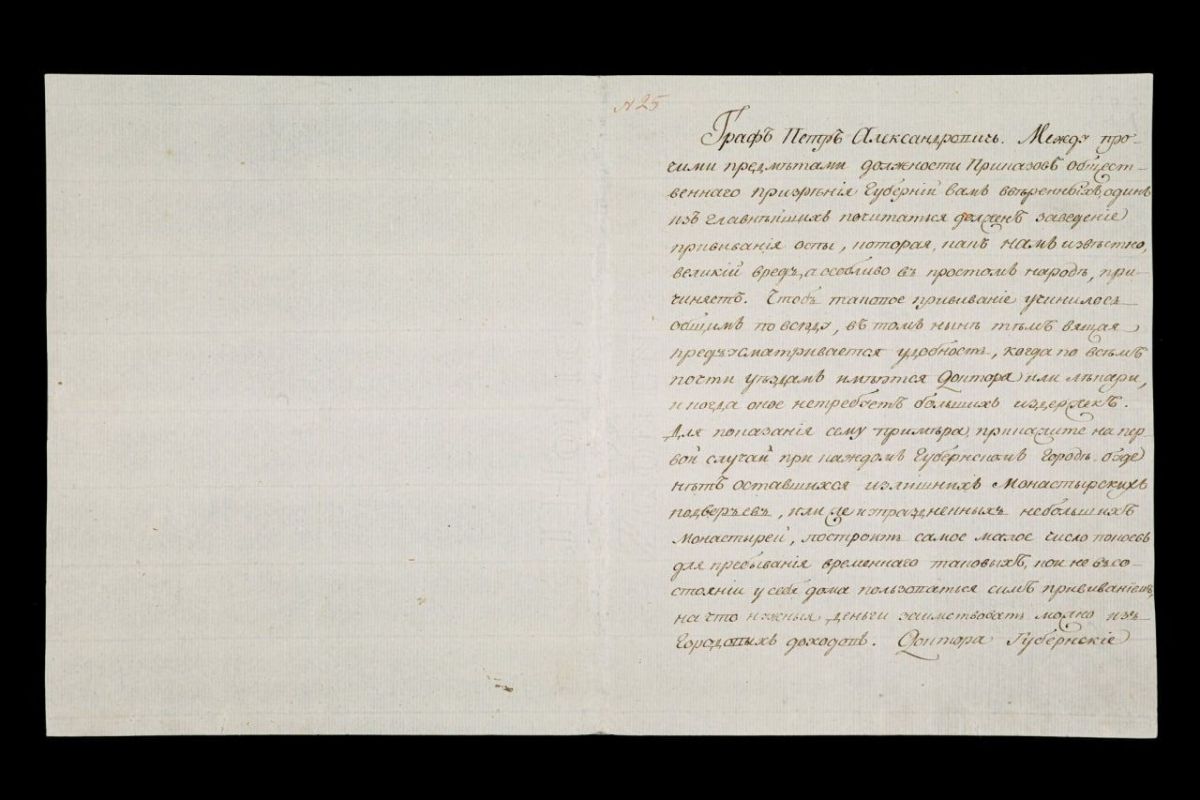 N 25
Графъ Петръ Александровичь. Между про-
чими предмѣтами должности Приказовъ общест-
веннаго призрѣнія Губерній вамъ ввѣренныхъ, одинъ
изъ главнѣйшихъ почитаться долженъ заведеніе
прививанія оспы, которая, какъ намъ извѣстно,
великій вредъ, а особливо въ простомъ народѣ, при-
чиняетъ. Чтобъ таковое прививаніе учинилось
общимъ повсюду, въ томъ нынѣ тѣмъ вящая
предъусматривается удобность, когда по всѣмъ
почти уѣздамъ имѣются Доктора или лѣкари,
и когда оное нетребуетъ большихъ издержекъ.
Для показанія сему примѣра, прикажите на пер-
вой случай при каждомъ Губернскомъ городѣ, буде
нѣтъ оставшихся излишнихъ Монастырскихъ
подверьевъ, или изпраздненныхъ небольшихъ
Монастырей, построить самое малое число покоевъ
для пребыванія временнаго таковыхъ, кои не въсо-
стояніи у себя дома пользоваться симъ прививаніемъ,
на что нужныя деньги заимствовать можно изъ
Городовыхъ доходовъ. Доктора Губернскіе